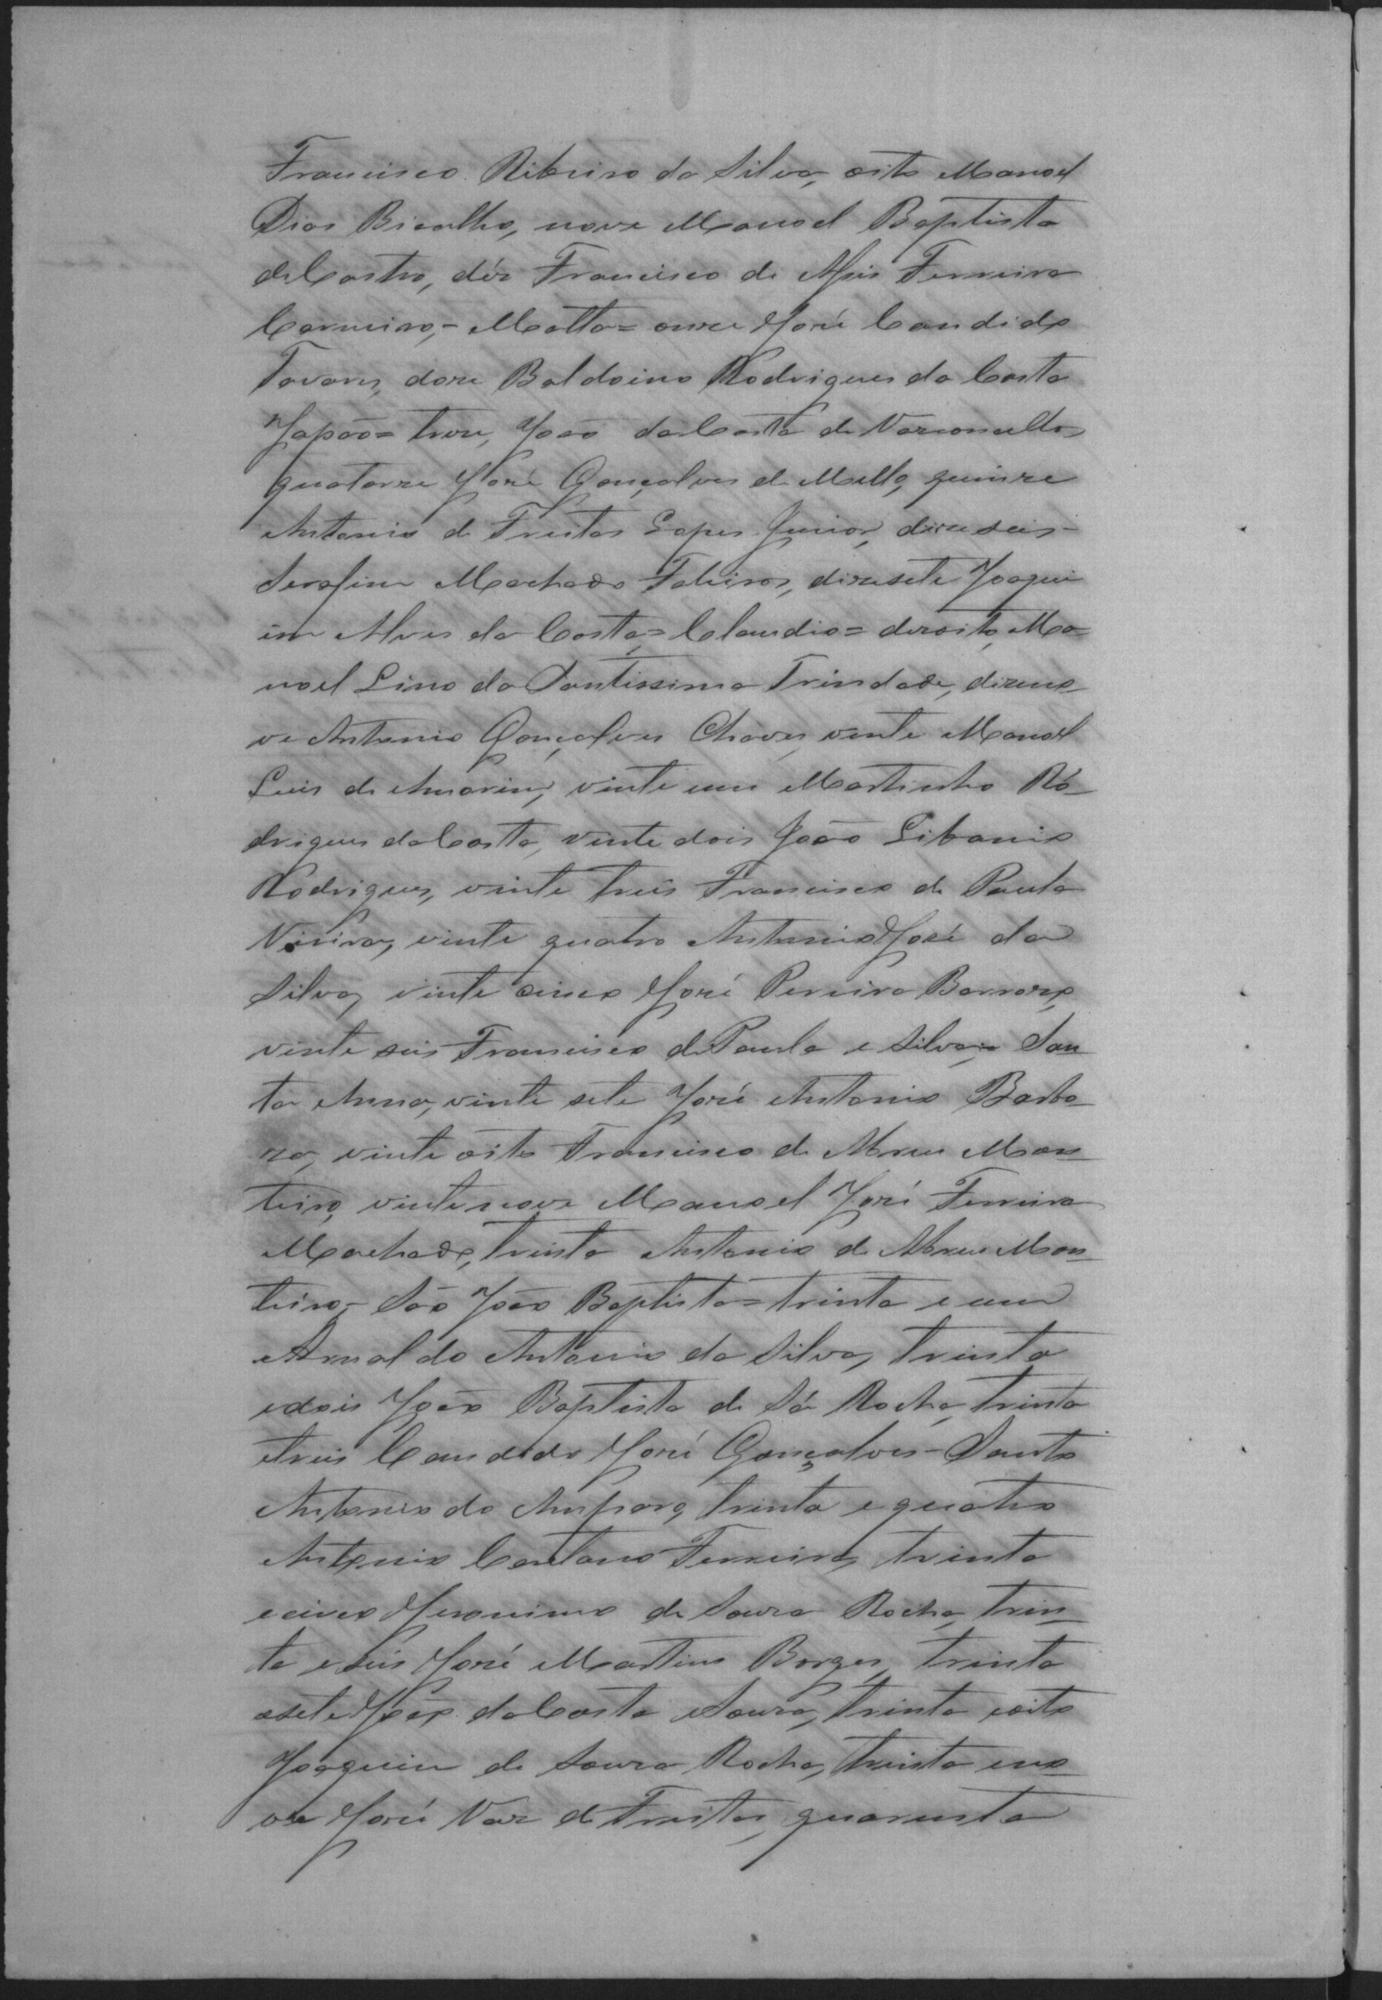 Francisco Ribeiro da Silva, oito Manoel
Dias Bicalho, nove Manoel Baptista
de Castro, déz Francisco de Assis Ferreira
Carneiro,- Matta= onze José Candido
Tavares, doze Baldoino Rodrigues da Costa
Japão= treze, João da Costa de Vasconcellos
quatorze José Gonçalves de Mello, quinze
Antonio de Freitas Lopes Junior, dezeseis-
Serafim Machado Faleiros, dezesete Joaqui
im Alves da Costa,= Claudio= dezoito, Ma=
noel Lino da Santissima Trindade, dezeno
ve Antonio Gonçalves Chaves, vinte Manoel
Luis de Amorim, vinte um Martinho Ro-
drigues da Costa, vinte dois João Libanio
Rodrigues, vinte treis Francisco de Paula
Vieira, vinte quatro Antonio José da
Silva, vinte cinco José Pereira Barroso,
vinte seis Francisco de Paula e Silva,= San
ta Anna, vinte sete José Antonio Barbo-
za, vinte oito Francisco de Abreu Mon
teiro, vinte nove Manoel José Ferreira
Machado, trinta Antonio de Abreu Mon-
teiro,- São João Baptista= trinta e um
Arnaldo Antonio da Silva, trinta
e dois João Baptista de Sá Rocha, trinta
e treis Candido José Gonçalves- Santo
Antonio do Amparo, trinta e quatro
Antonio Caetano Ferreira, trinta
e cinco Jeronimo de Souza Rocha, trin-
ta e seis José Martins Borges, trinta
e sete João da Costa e Souza, trinta e oito
Joaquim de Souza Rocha, trinta e no
ve José Vaz de Freitas, quarenta